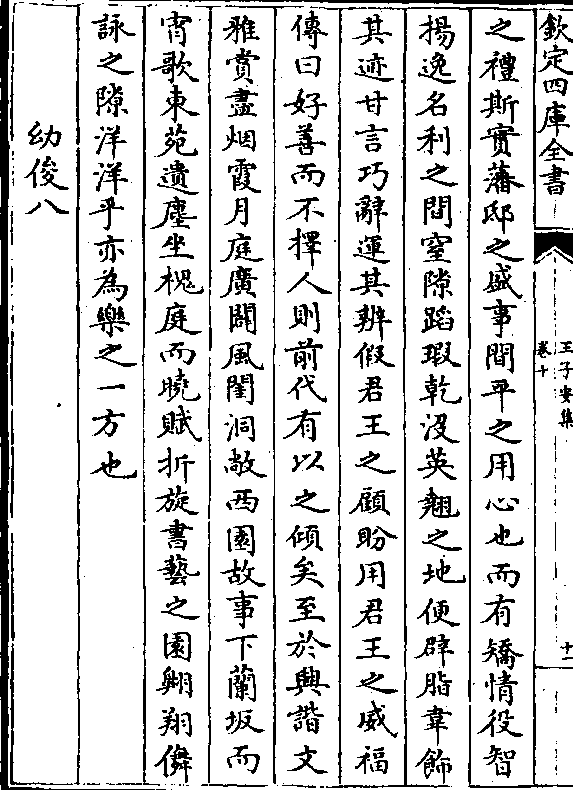 欽定四庫全書
王子安集
卷十
十一
之禮斯實藩邸之盛事間平之用心也而有矯情役智
揚逸名利之間窒隙蹈瑕乾沒英翹之地便辟脂韋飾
其迹甘言巧辭運其辨假君王之顧盼用君王之威福
傳曰好善而不擇人則前代有以之傾矣至於興諧文
雅賞盡烟霞月庭廣闢風閨洞敞西園故事下蘭坂而
宵歌東苑遺塵坐槐庭而曉賦折旋書藝之園翺翔儕
詠之隙洋洋乎亦為樂之一方也
幼俊八